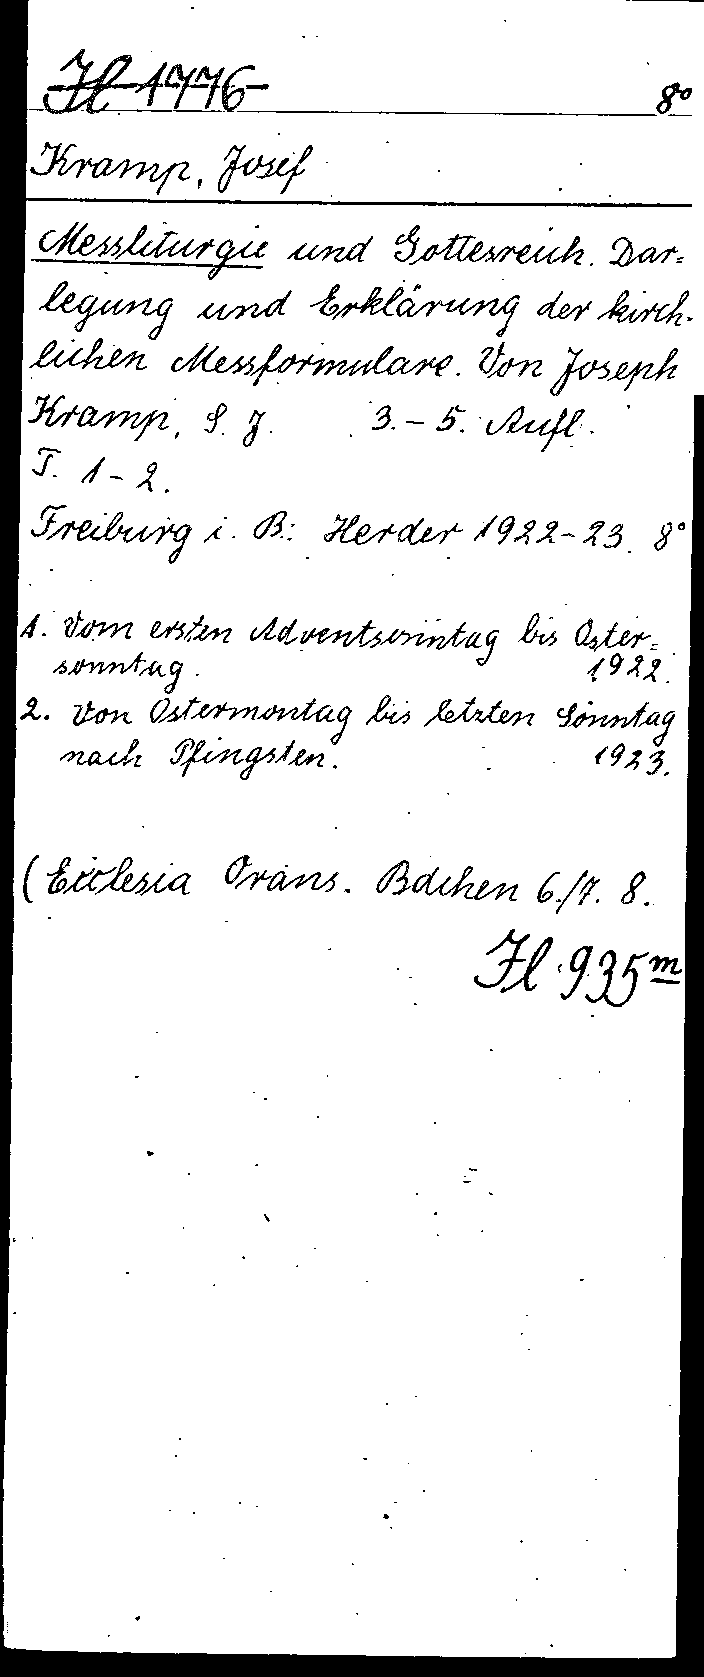 Jl 1776 8°
Kramp, Josef
Messliturgie und Gottesreich. Dar=
legung und Erklärung der kirch-
lichen Messformulare. Von Joseph
Kramp, S. J. 3.-5. Aufl.
T. 1-2.
Freiburg i. B.: Herder 1922-23. 8°
1. Vom ersten Adventsonntag bis Oster=
sonntag. 1922.
2. Von Ostermontag bis letzten Sonntag
nach Pfingsten. 1923.
(Ecclesia Orans. Bdchen 6./7. 8.
Jl 935m